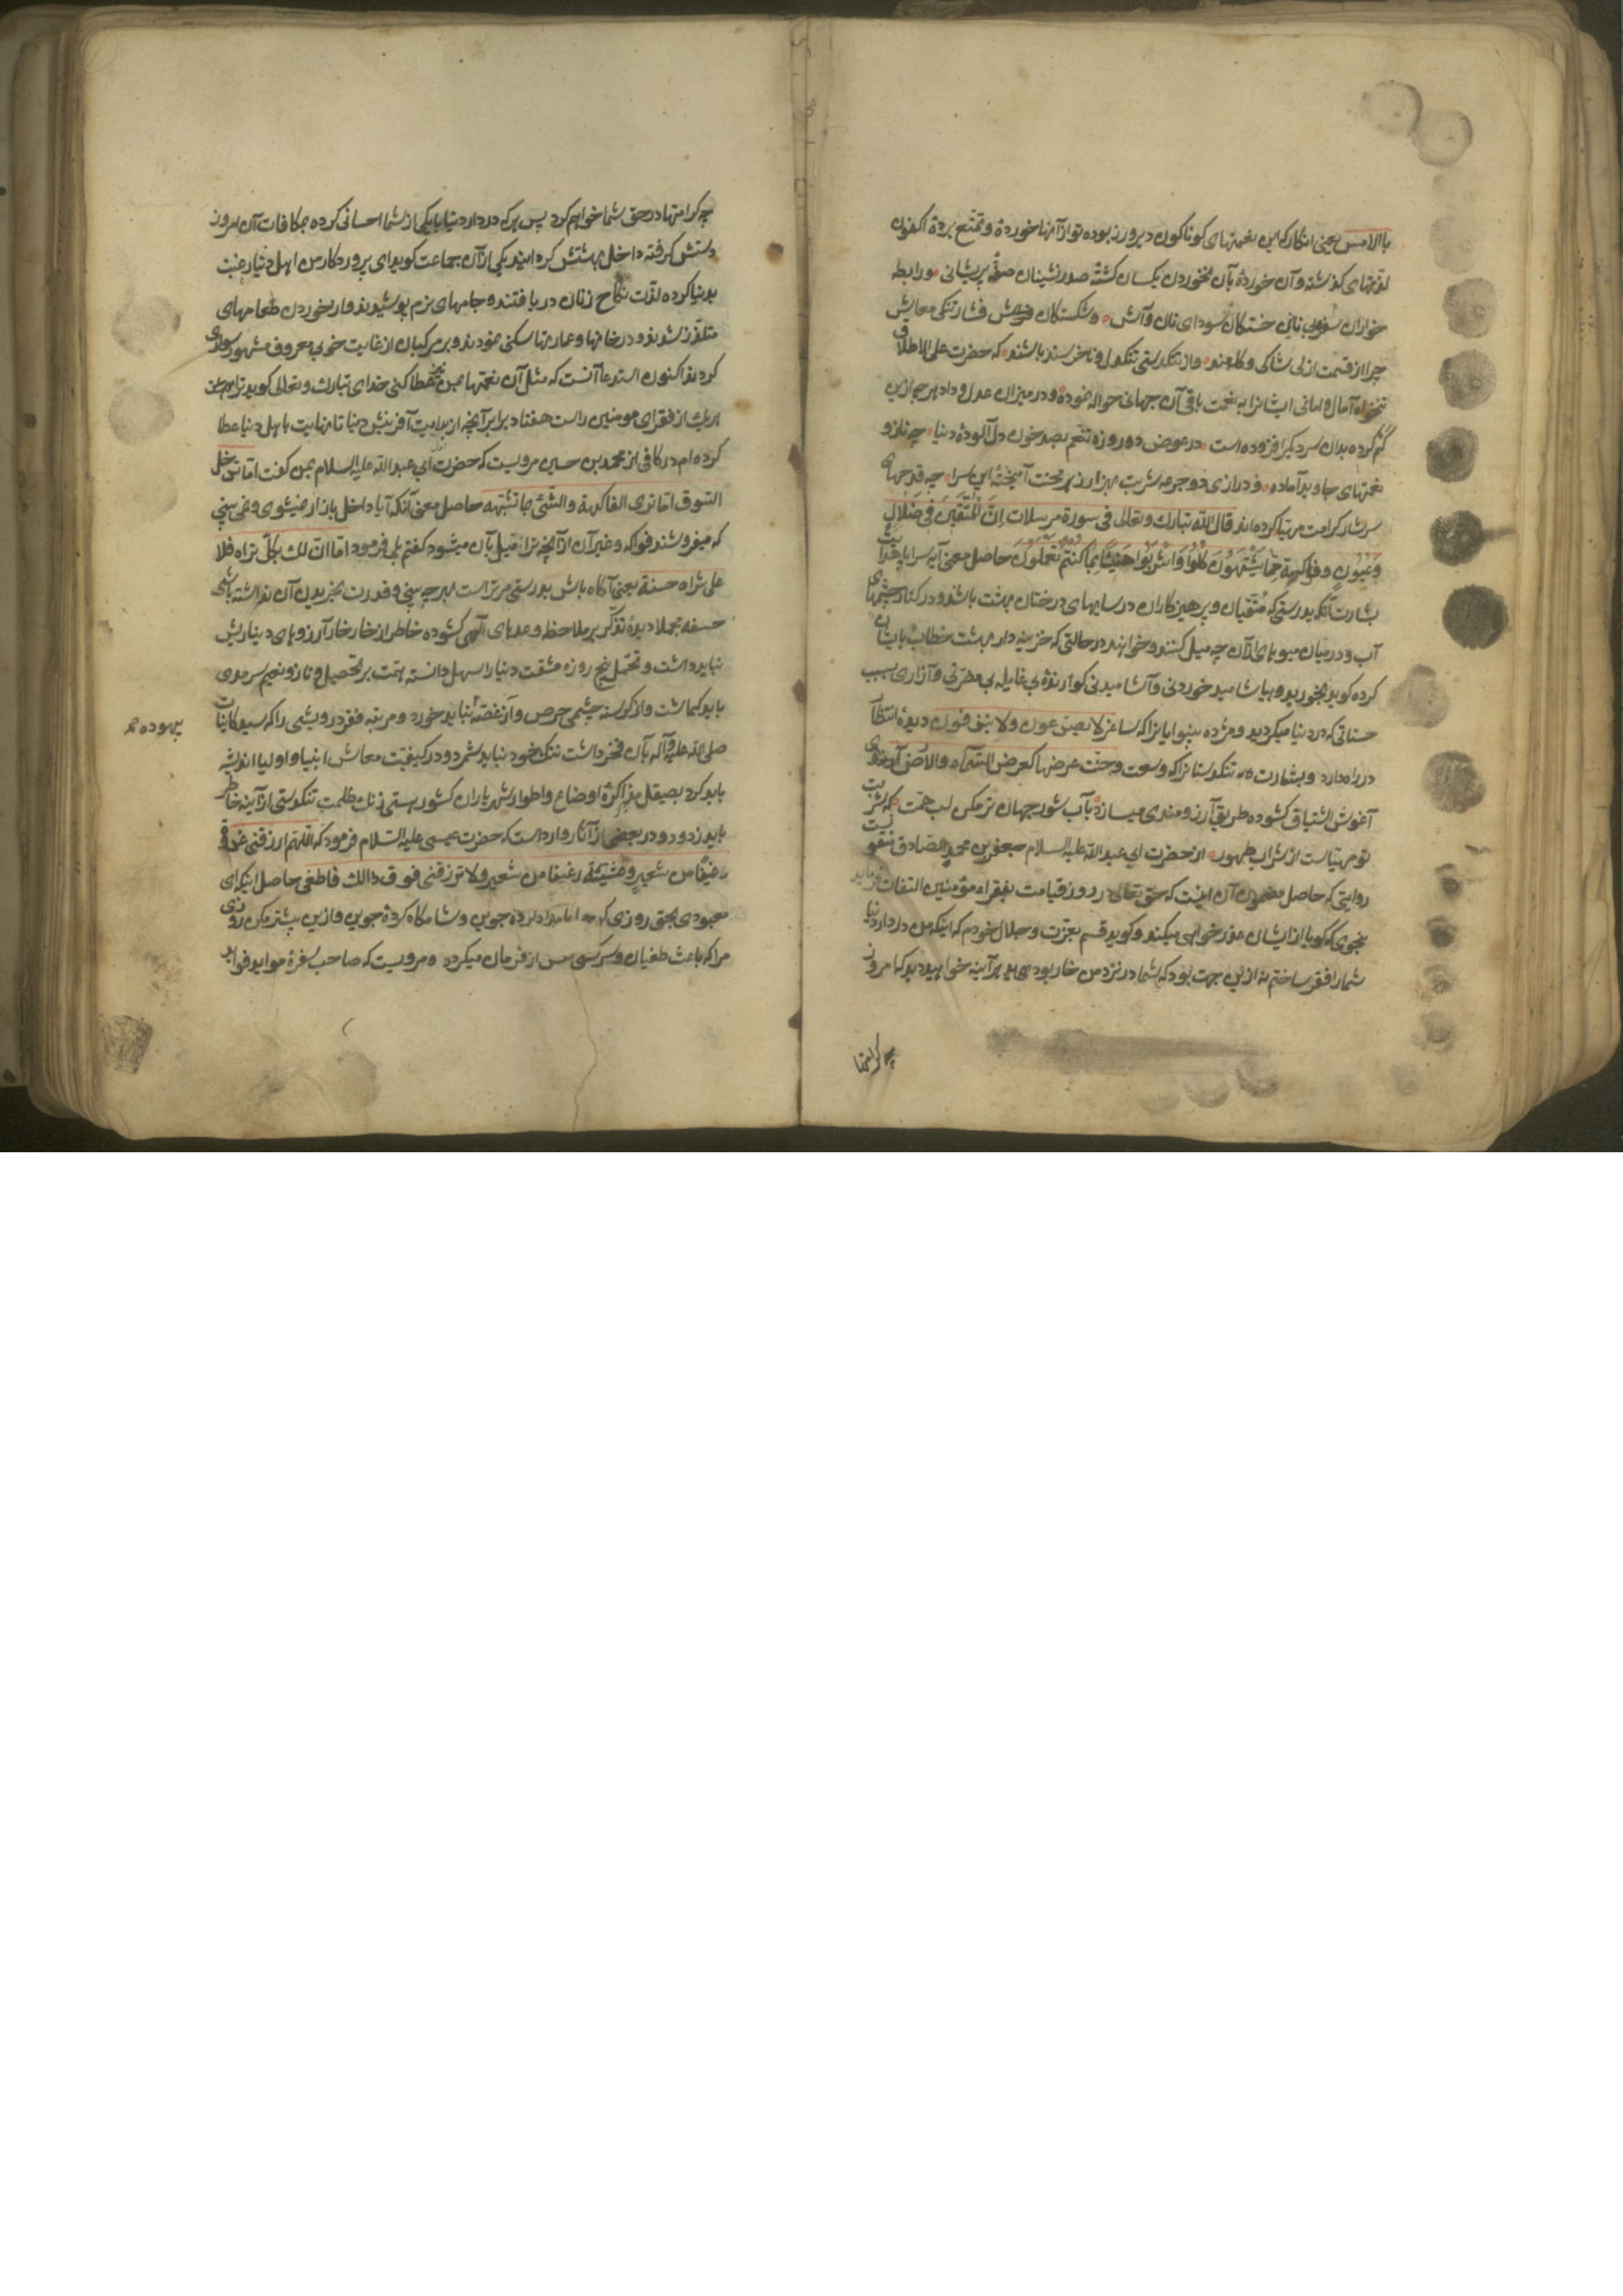 بالامس یعنی انکار که این نعمتهای کوناکون دیروز بوده تو از آنها خوردهٔ و تمتع بردهٔ اکنون
لذتهای کذشته و آن خوردهٔ بآن نخوردن یکسان کشتهٔ صدرنشینان صفهٔ پریشانی و رابطه
خواران بی نانی خستکان سودای نان و آش و شکستکان فشار تنکی معاش
چرا از قسمت ازلی شاکی و کله‌مند و از تنکدستی تنکدل و ناخرسند باشند که حضرت علی الاطلاق
تنخواه آمال و امانی ایشانرا به نعمت باقی آن جهانی حواله نموده و در میزان عدل و داد هرچه ازین
کم کرده بدان سر دیکر افزوده است در عوض دو روزه تنعم بصد خون دل آلودهٔ دنیا چه ناز و
نعمتهای جاوید آماده و در ازی دو جرعه شربت بهزار زهر محنت آمیختهٔ این سرا چه قدحهای
سرشار کرامت مهیا کرده‌اند قال الله تبارک و تعالی فی سورة مرسلات اِنَّ المُتَّقینَ فی ضلالٍ
وَ عُیُونٍ و فواکهة ممّا یَشتَهُونَ کُلُوا وَاشْرَبُوا هَنِیئًا بِمَا کُنتُم تَعمَلُونَ حاصل معنی آیه سراپا هدایت
بشارت آنکه بدرستی که متقیان و پرهیزکاران در سایهای درختان بهشت باشند و در کنار چشمهای
آب و در میان میوهای از آن چه میل کنند و خواهند در حالتی که خزینه‌دار بهشت خطاب بایشان
کرده کوید بخورید و بیاشامید خوردنی و آشامیدنی کوارندهٔ بی غایله بی مضرتی و آزاری بسبب
حسناتی که در دنیا میکردید و مژده بینوایانرا که ساغر لا یصدعون و لا ینزفون دیدهٔ انتظار
در راه دارد و بشارت تنکدستانرا که وسعت و جنّت عرضها کعرض السّماء والارض آرزوی
آغوش اشتیاق کشوده طریق آرزومندی میسازد بآب شور جهان تر مکن لب همّت که شربت
تو مهیاست از شراب طهور از حضرت ابی عبد الله علیه السلام جعفر بن محمد الصادق منقولست
روایتی که حاصل مضمون آن اینست که حق تعالی در روز قیامت بفقراء مؤمنین التفات فرماید
بنحوی که کویا از ایشان عذر خواهی میکند و کوید قسم بعزت و جلال خودم که اینکه من در دار دنیا
شما را فقیر ساختم نه ازین جهت بود که شما در نزد من خار بودید هرآینه خواهید دید که امروز
چه کرامتها
چه کرامتها در حق شما خواهم کرد پس هر که در دار دنیا با یکی از شما احسانی کرده بمکافات آن امروز
دستش کرفته داخل بهشتش کردانید یکی از آن جماعت کوید ای پروردکار من اهل دنیا رغبت
بدنیا کرده لذت نکاح زنان دریافتند و جامهای نرم پوشیدند و از خوردن طعامهای
متلذذ شدند و در خانها و عمارتها سکنی نمودند و بر مرکبان از غایت خوبی معروف مشهور سواری
کردند اکنون استدعا آنست که مثل آن نعمتها بمن عطا کنی خدای تبارک و تعالی کوید ترا و هر
یک از فقرای مومنین راست هفتاد برابر آنچه از بدایت آفرینش دنیا تا نهایت باهل دنیا عطا
کرده‌ام در کافی از محمد بن حسین مرویست که حضرت ابی عبد الله علیه السلام بمن کفت اما تدخل
السّوق اما تری الفاکهة والشّئ ممّا تشتهیه حاصل معنی آنکه آیا داخل بازار نمیشوی و نمی بینی
که میفروشند فواکه و غیر آن از آنچه ترا میل بآن میشود کفتم بلی فرمود اما ان لک بکلّ تراه فلا
علی شراه حسنة یعنی آکاه باش بدرستی مر تراست هر چه بینی و قدرت بخریدن آن نداشته باشی
حسنه مجملا دیدهٔ تذکّر بر ملاحظه وعدهای آلهی کشوده خاطر از خارخار آرزوهای دنیا ریش
نباید داشت و تحمّل پنج روزه مشقت دنیا را سهل دانسته همت بر تحصیل و ناز و نعیم سرمدی
باید کماشت و از کرسنه چشمی حرص و آز غصه نباید خورد و مرتبه فقر درویشی را که سید کاینات
صلی الله علیه و آله بآن فخر داشت ننک خود نباید شمرد و در کیفیّت معاش انبیا و اولیا اندیشه
باید کرد بصیقل مذاکرهٔ اوضاع و اطوار شهریاران کشور هستی زنک ظلمت تنکدستی از آینه خاطر
باید زدود و در بعضی از آثار وارد است که حضرت عیسی علیه السّلام فرمود که اللّهم ارزقنی غدوة
رغیفًا من شعیر و عشیّة رغیفا من شعیر ولا ترزقنی فوق ذالک فاطغی حاصل اینکه ای
معبود بحق روزی کن بامداد کردهٔ جوین و شامکاه کردهٔ جوین و ازین بیشتر مکن روزی
مرا که باعث طغیان و سرکشی من از فرمان میکردد و مرویست که صاحب سفرهٔ موایدفواید
بیهوده